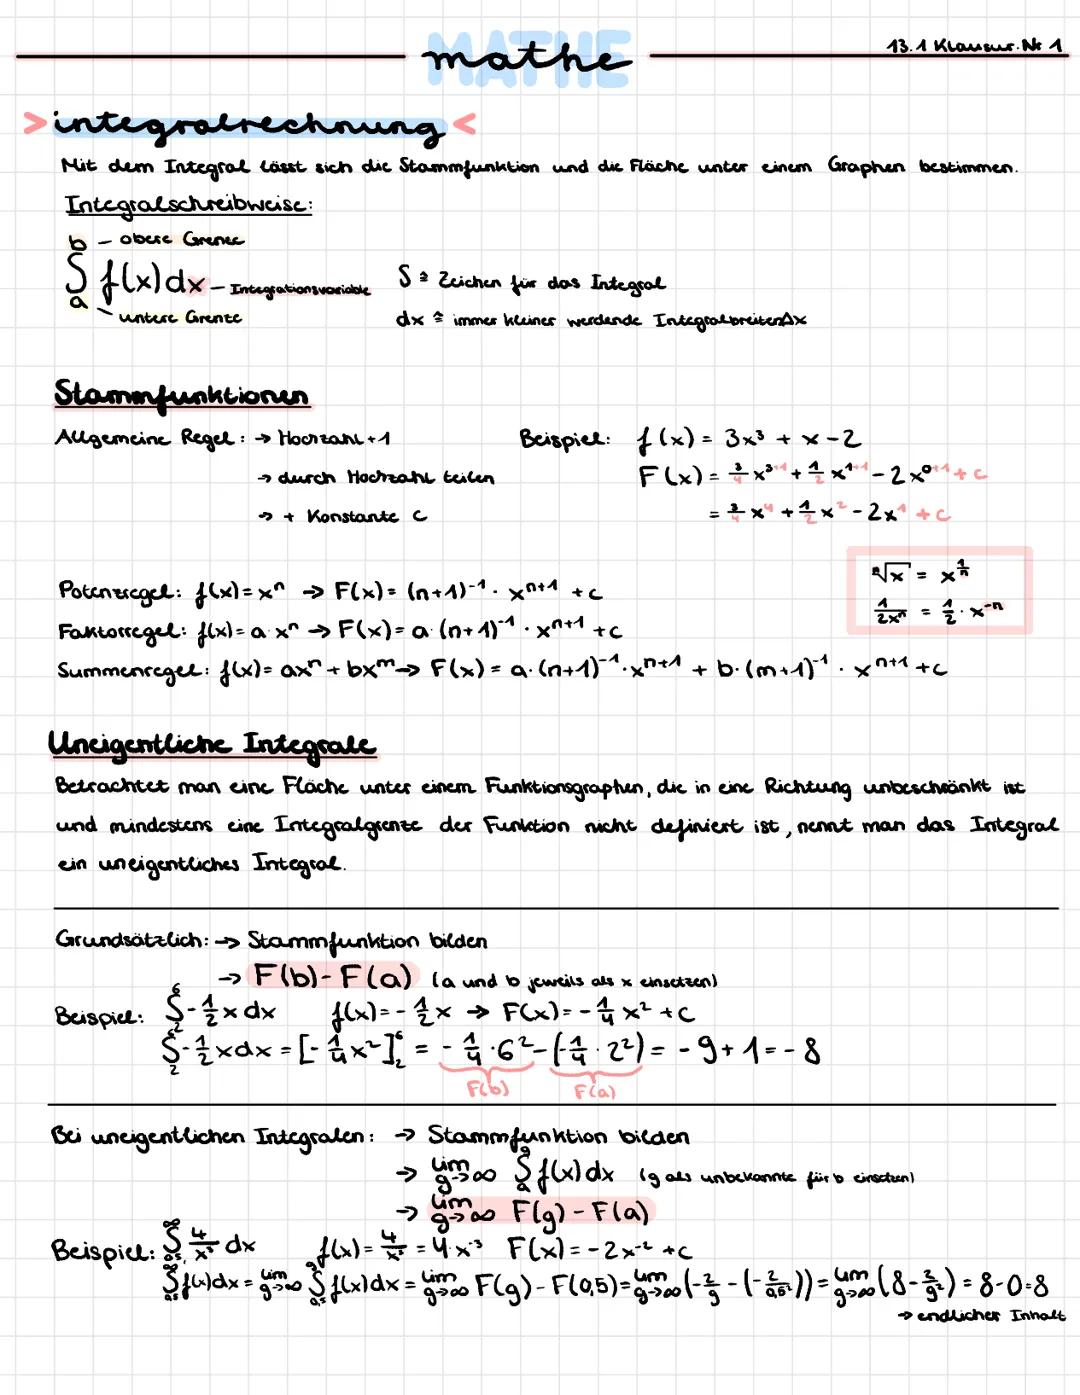 MATHE
mathe
13.1 Klausur Nr 1
> integralrechnung <
Mit dem Integral lässt sich die Stammfunktion und die Fläche unter einem Graphen bestimmen.
Integralschreibweise:
b - obere Grenze
∫ f(x) dx - Integrationsvariable
a - untere Grenze
S ≙ Zeichen für das Integral
dx ≙ immer kleiner werdende IntegralbreitenΔx
Stammfunktionen
Allgemeine Regel: → Hochzahl +1
→ durch Hochzahl teilen
→ + Konstante c
Beispiel: f(x) = 3x³ + x - 2
F(x) = 3/4 x³⁺¹ + 1/2 x¹⁺¹ - 2x⁰⁺¹ + c
= 3/4 x⁴ + 1/2 x² - 2x¹ + c
ⁿ√x = x^(1/n)
1/(2xⁿ) = 1/2 · x⁻ⁿ
Potenzregel: f(x) = xⁿ → F(x) = (n+1)⁻¹ · xⁿ⁺¹ + c
Faktorregel: f(x) = a·xⁿ → F(x) = a·(n+1)⁻¹ · xⁿ⁺¹ + c
Summenregel: f(x) = axⁿ + bxᵐ → F(x) = a·(n+1)⁻¹·xⁿ⁺¹ + b·(m+1)⁻¹ · xⁿ⁺¹ + c
Uneigentliche Integrale
Betrachtet man eine Fläche unter einem Funktionsgraphen, die in eine Richtung unbeschränkt ist
und mindestens eine Integralgrenze der Funktion nicht definiert ist, nennt man das Integral
ein uneigentliches Integral.
Grundsätzlich: → Stammfunktion bilden
→ F(b) - F(a) (a und b jeweils als x einsetzen)
Beispiel: ∫₂⁶ -1/2 x dx f(x) = -1/2 x → F(x) = -1/4 x² + c
∫₂⁶ -1/2 x dx = [-1/4 x²]₂⁶ = -1/4 · 6² - (-1/4 · 2²) = -9 + 1 = -8
F(b) F(a)
Bei uneigentlichen Integralen: → Stammfunktion bilden
→ lim g→∞ ∫ₐᵍ f(x) dx (g als unbekannte für b einsetzen)
→ lim g→∞ F(g) - F(a)
Beispiel: ∫₀,₅^∞ 4/x³ dx f(x) = 4/x³ = 4·x⁻³ F(x) = -2x⁻² + c
∫₀,₅^∞ f(x) dx = lim g→∞ ∫₀,₅^g f(x) dx = lim g→∞ F(g) - F(0,5) = lim g→∞ (-2/g - (-2/0,5²)) = lim g→∞ (8 - 2/g²) = 8 - 0 = 8
→ endlicher Inhalt